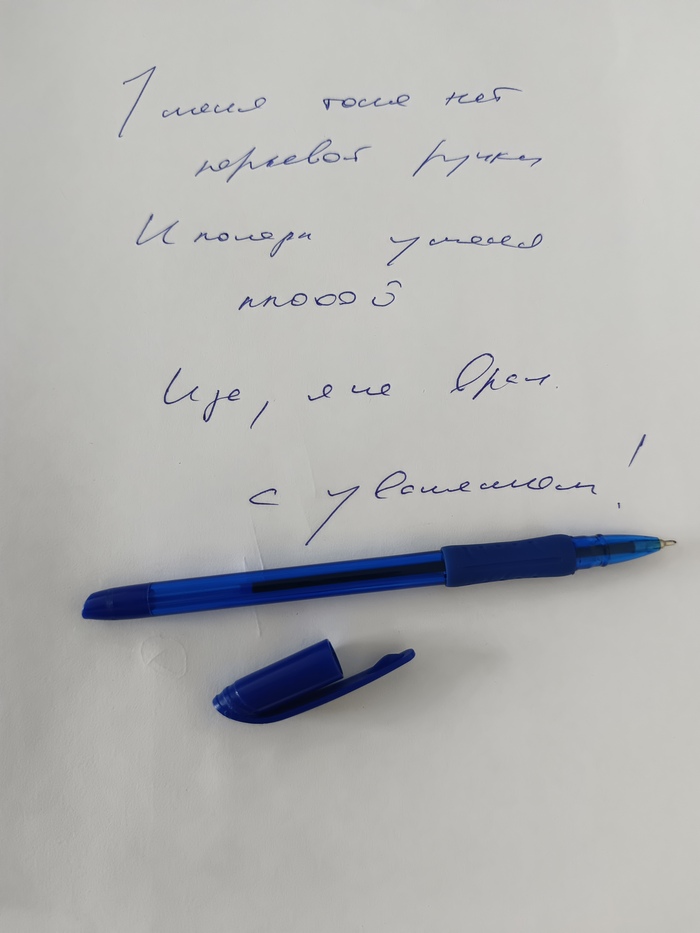 У меня тоже нет
перьевой ручки
И почерк у меня
плохой
И да, я не врач.
С уважением!